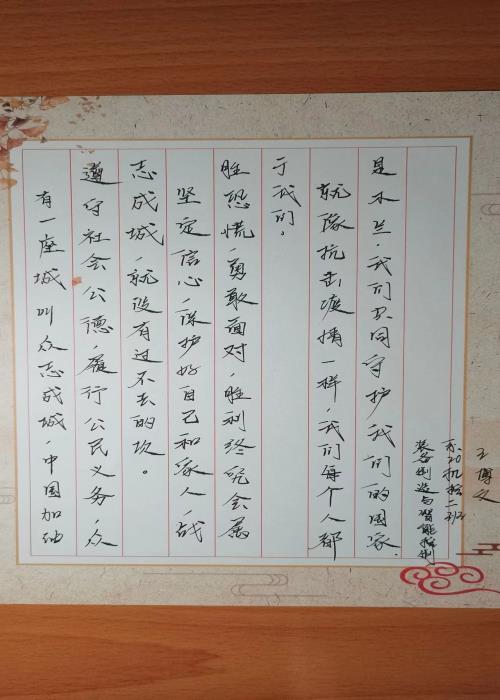 有一座城叫众志成城,中国加油
遵守社会公德,履行公民义务,众
志成城,就没有过不去的坎。
坚定信心,保护好自己和家人,战
胜恐慌,勇敢面对,胜利终究会属
于我们。
就像抗击疫情一样,我们每个人都
是木兰,我们共同守护我们的国家.
装备制造与智能控制
20机控二班
王博文